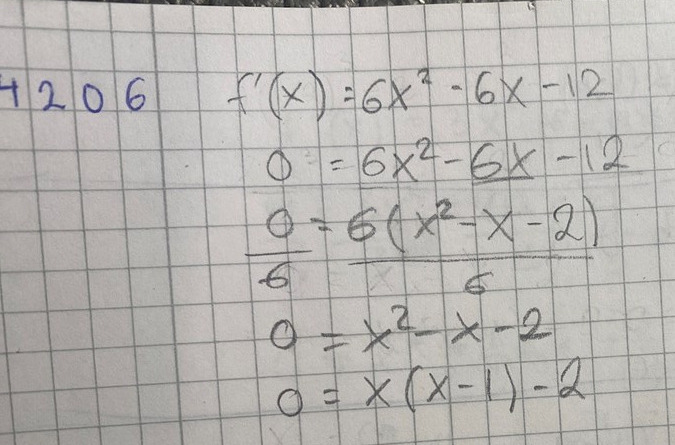 4206 f'(x) = 6x² - 6x - 12
0 = 6x² - 6x - 12
0 = 6(x² - x - 2)
6 6
0 = x² - x - 2
0 = x(x - 1) - 2